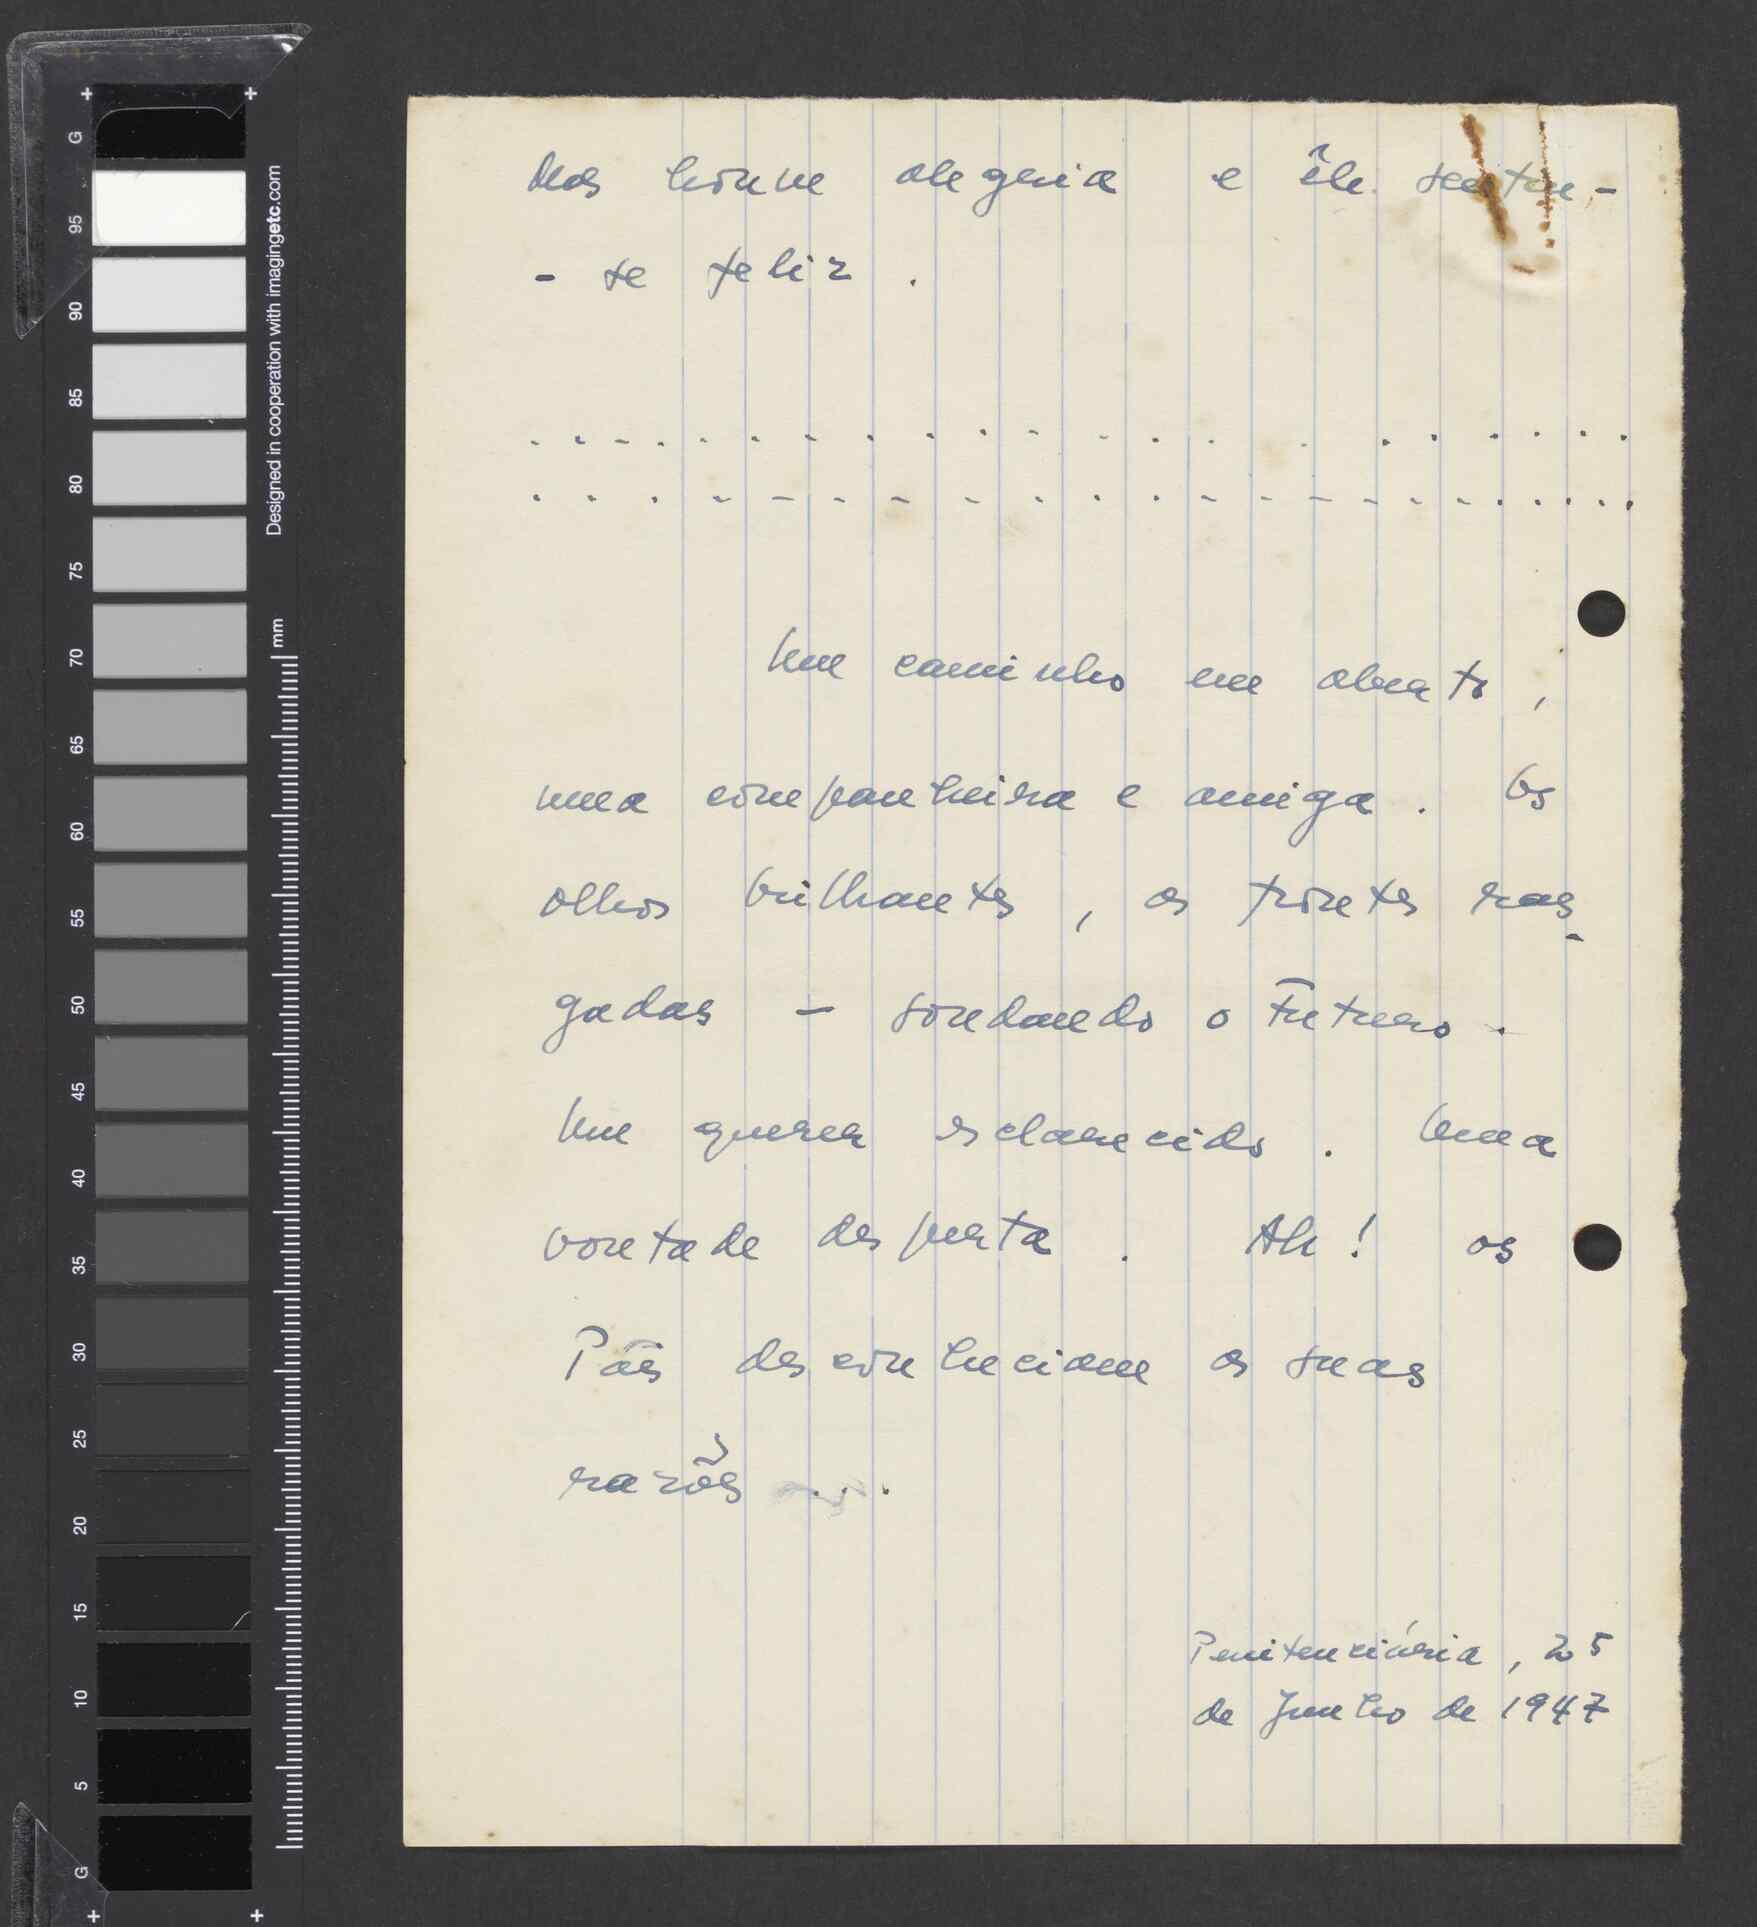 Mas houve alegria e êle sentiu-
- se feliz .
. . . . . . . . . . . . . . . . . . . . . .
. . . . . . . . . . . . . . . . . . . . . .
Um caminho em aberto ,
uma companheira e amiga . Os
olhos brilhantes , as frontes ras-
gadas - sondando o Futuro .
Um querer esclarecido . Uma
vontade desperta . Ah ! os
Pais desconheciam as suas
razões ...
Penitenciária , 25
de Junho de 1947
G
95
90
85
80
75
70
65
60
55
50
45
40
35
30
25
20
15
10
5
G
Designed in cooperation with imagingetc.com
mm